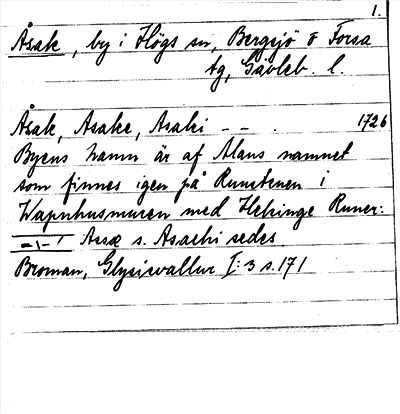 1.
Åsak, by i Högs sn, Bergsjö o Forsa
tg, Gävleb. l.
Åsak, Asake, Asaki - - . 1726
Byens namn är af Mans namnet
som finnes igen på Runstenen i
Wapnhusmuren med Helsinge Runer:
Assæ s. Asachi sedes.
Broman, Glysisvallur I: 3 s. 171